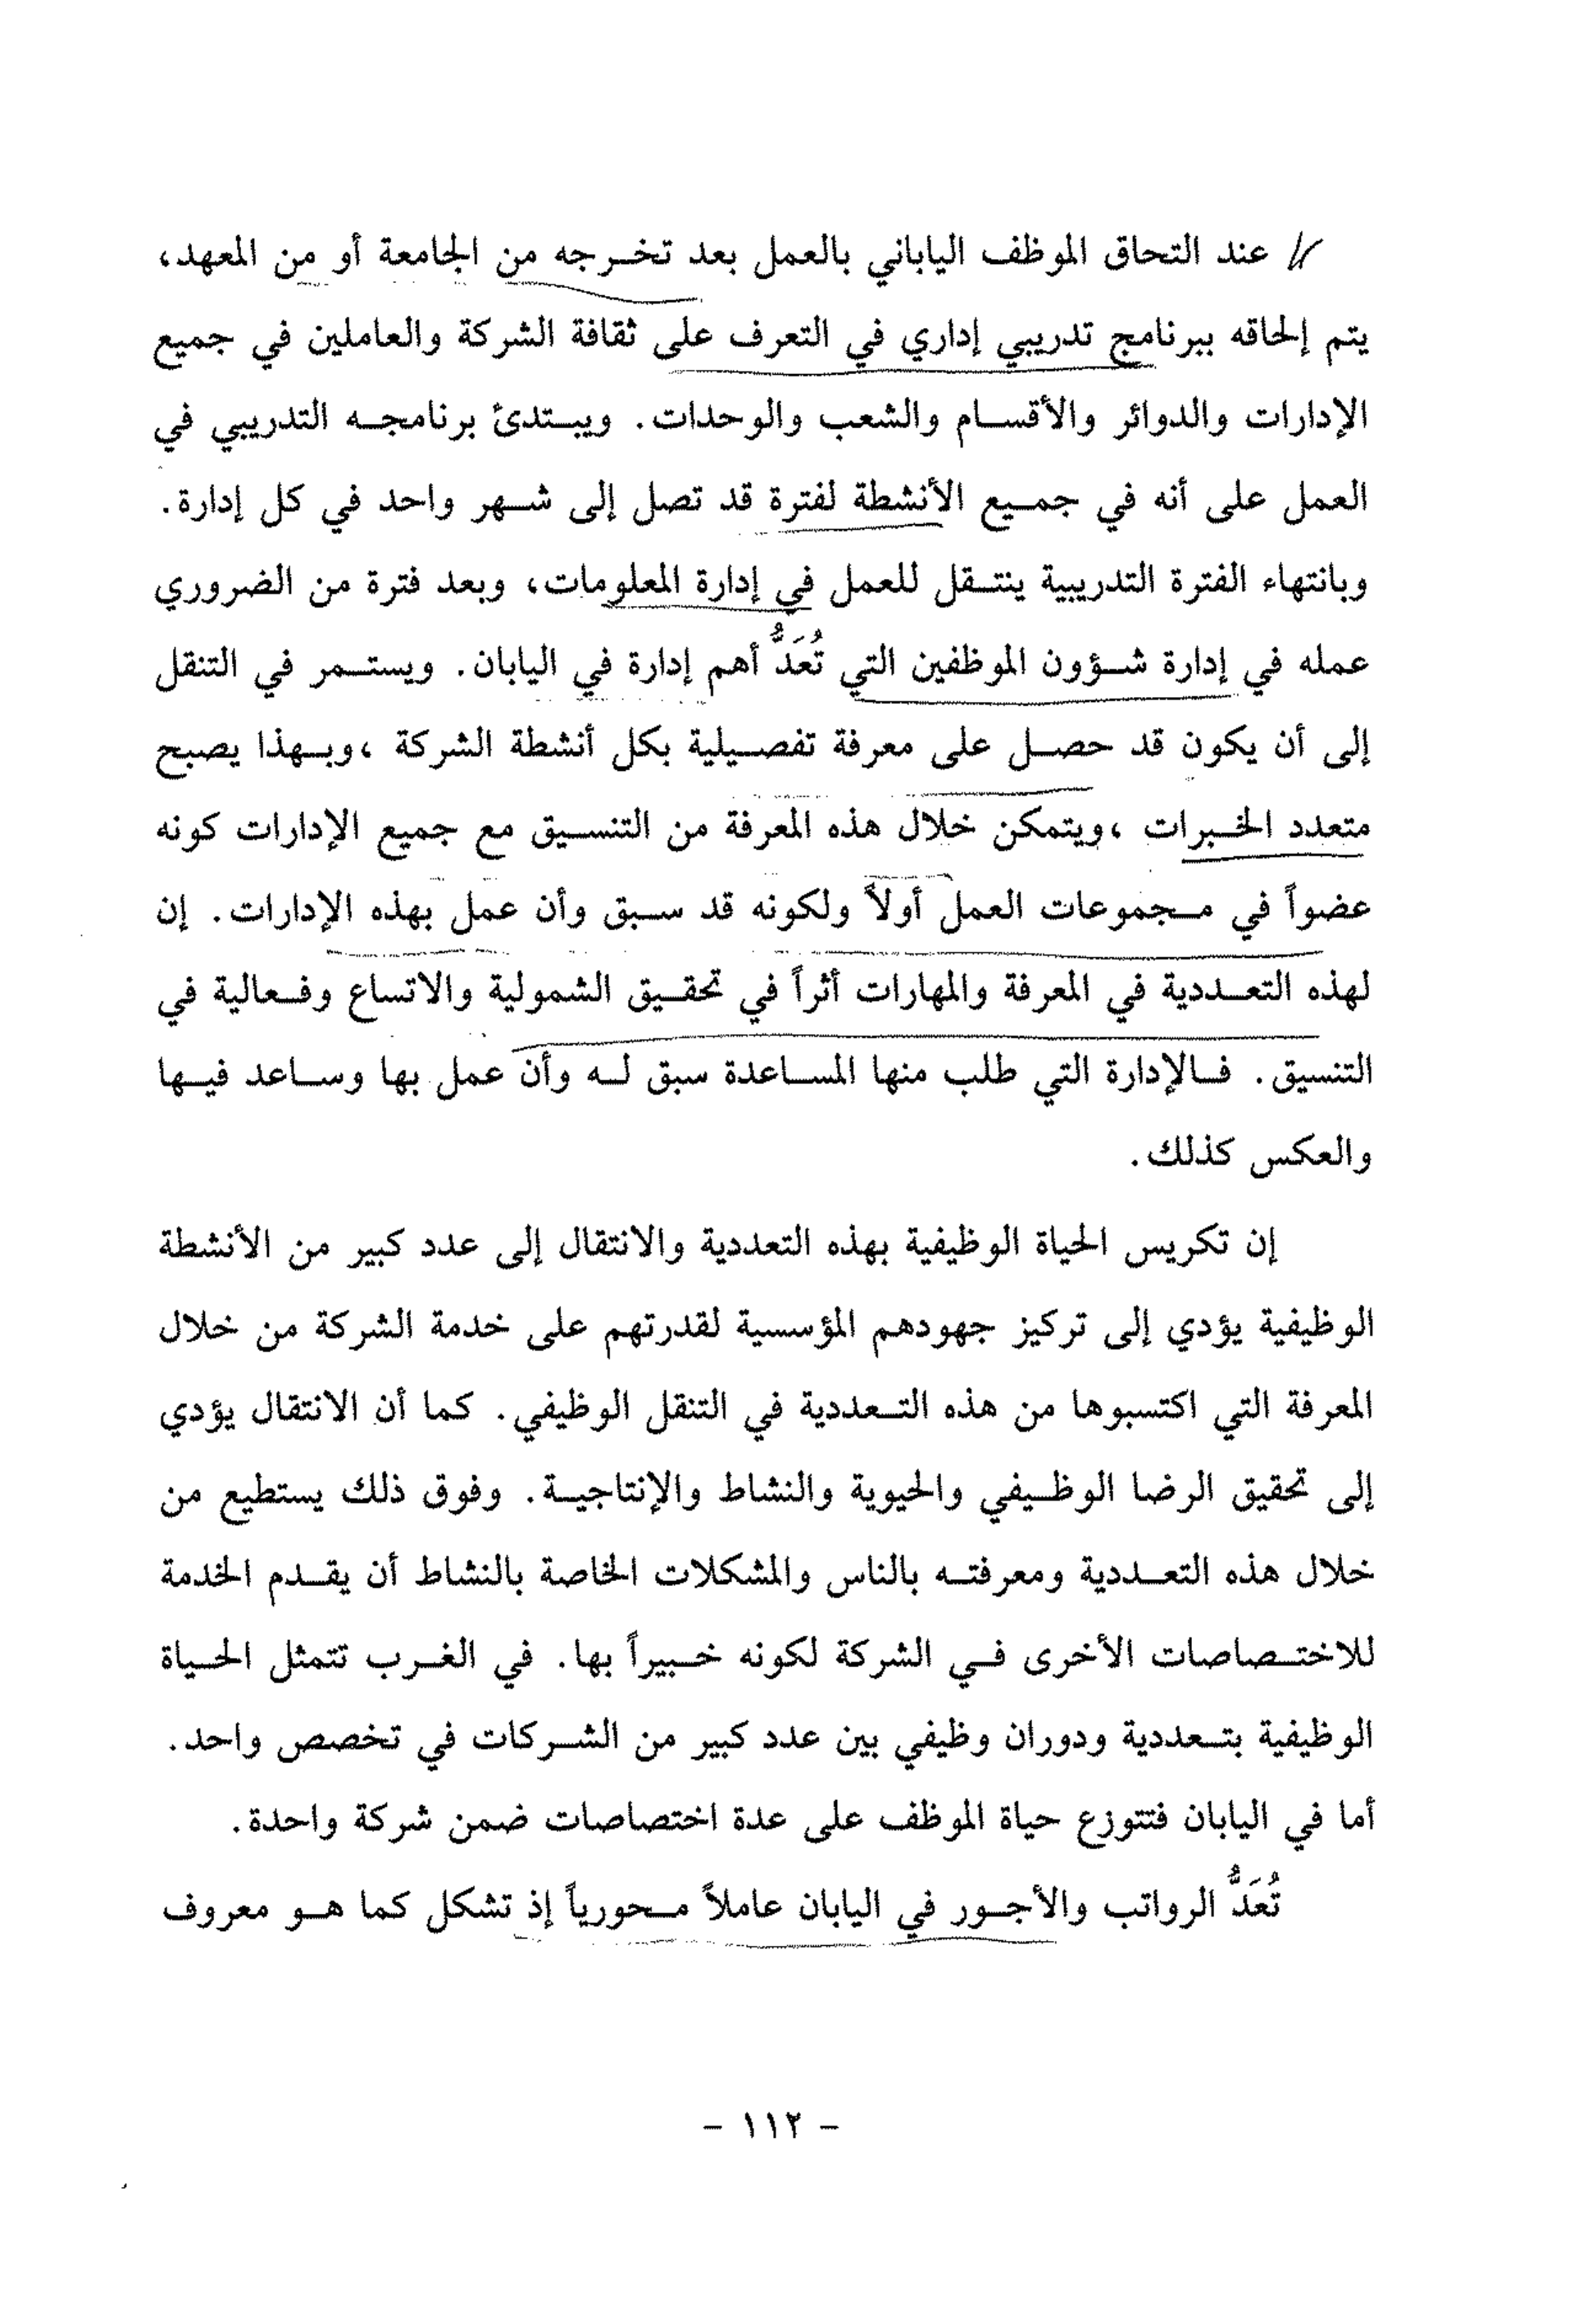 عند التحاق الموظف الياباني بالعمل بعد تخرجه من الجامعة أو من المعهد،
يتم إلحاقه ببرنامج تدريبي إداري في التعرف على ثقافة الشركة والعاملين في جميع
الإدارات والدوائر والأقسام والشعب والوحدات. ويبتدئ برنامجه التدريبي في
العمل على أنه في جميع الأنشطة لفترة قد تصل إلى شهر واحد في كل إدارة.
وبانتهاء الفترة التدريبية ينتقل للعمل في إدارة المعلومات، وبعد فترة من الضروري
عمله في إدارة شؤون الموظفين التي تُعَدُّ أهم إدارة في اليابان. ويستمر في التنقل
إلى أن يكون قد حصل على معرفة تفصيلية بكل أنشطة الشركة ،وبهذا يصبح
متعدد الخبرات ،ويتمكن خلال هذه المعرفة من التنسيق مع جميع الإدارات كونه
عضواً في مجموعات العمل أولاً ولكونه قد سبق وأن عمل بهذه الإدارات. إن
لهذه التعددية في المعرفة والمهارات أثراً في تحقيق الشمولية والاتساع وفعالية في
التنسيق. فالإدارة التي طلب منها المساعدة سبق له وأن عمل بها وساعد فيها
والعكس كذلك.
إن تكريس الحياة الوظيفية بهذه التعددية والانتقال إلى عدد كبير من الأنشطة
الوظيفية يؤدي إلى تركيز جهودهم المؤسسية لقدرتهم على خدمة الشركة من خلال
المعرفة التي اكتسبوها من هذه التعددية في التنقل الوظيفي. كما أن الانتقال يؤدي
إلى تحقيق الرضا الوظيفي والحيوية والنشاط والإنتاجية. وفوق ذلك يستطيع من
خلال هذه التعددية ومعرفته بالناس والمشكلات الخاصة بالنشاط أن يقدم الخدمة
للاختصاصات الأخرى في الشركة لكونه خبيراً بها. في الغرب تتمثل الحياة
الوظيفية بتعددية ودوران وظيفي بين عدد كبير من الشركات في تخصص واحد.
أما في اليابان فتتوزع حياة الموظف على عدة اختصاصات ضمن شركة واحدة.
تُعَدُّ الرواتب والأجور في اليابان عاملاً محورياً إذ تشكل كما هو معروف
- ١١٢ -